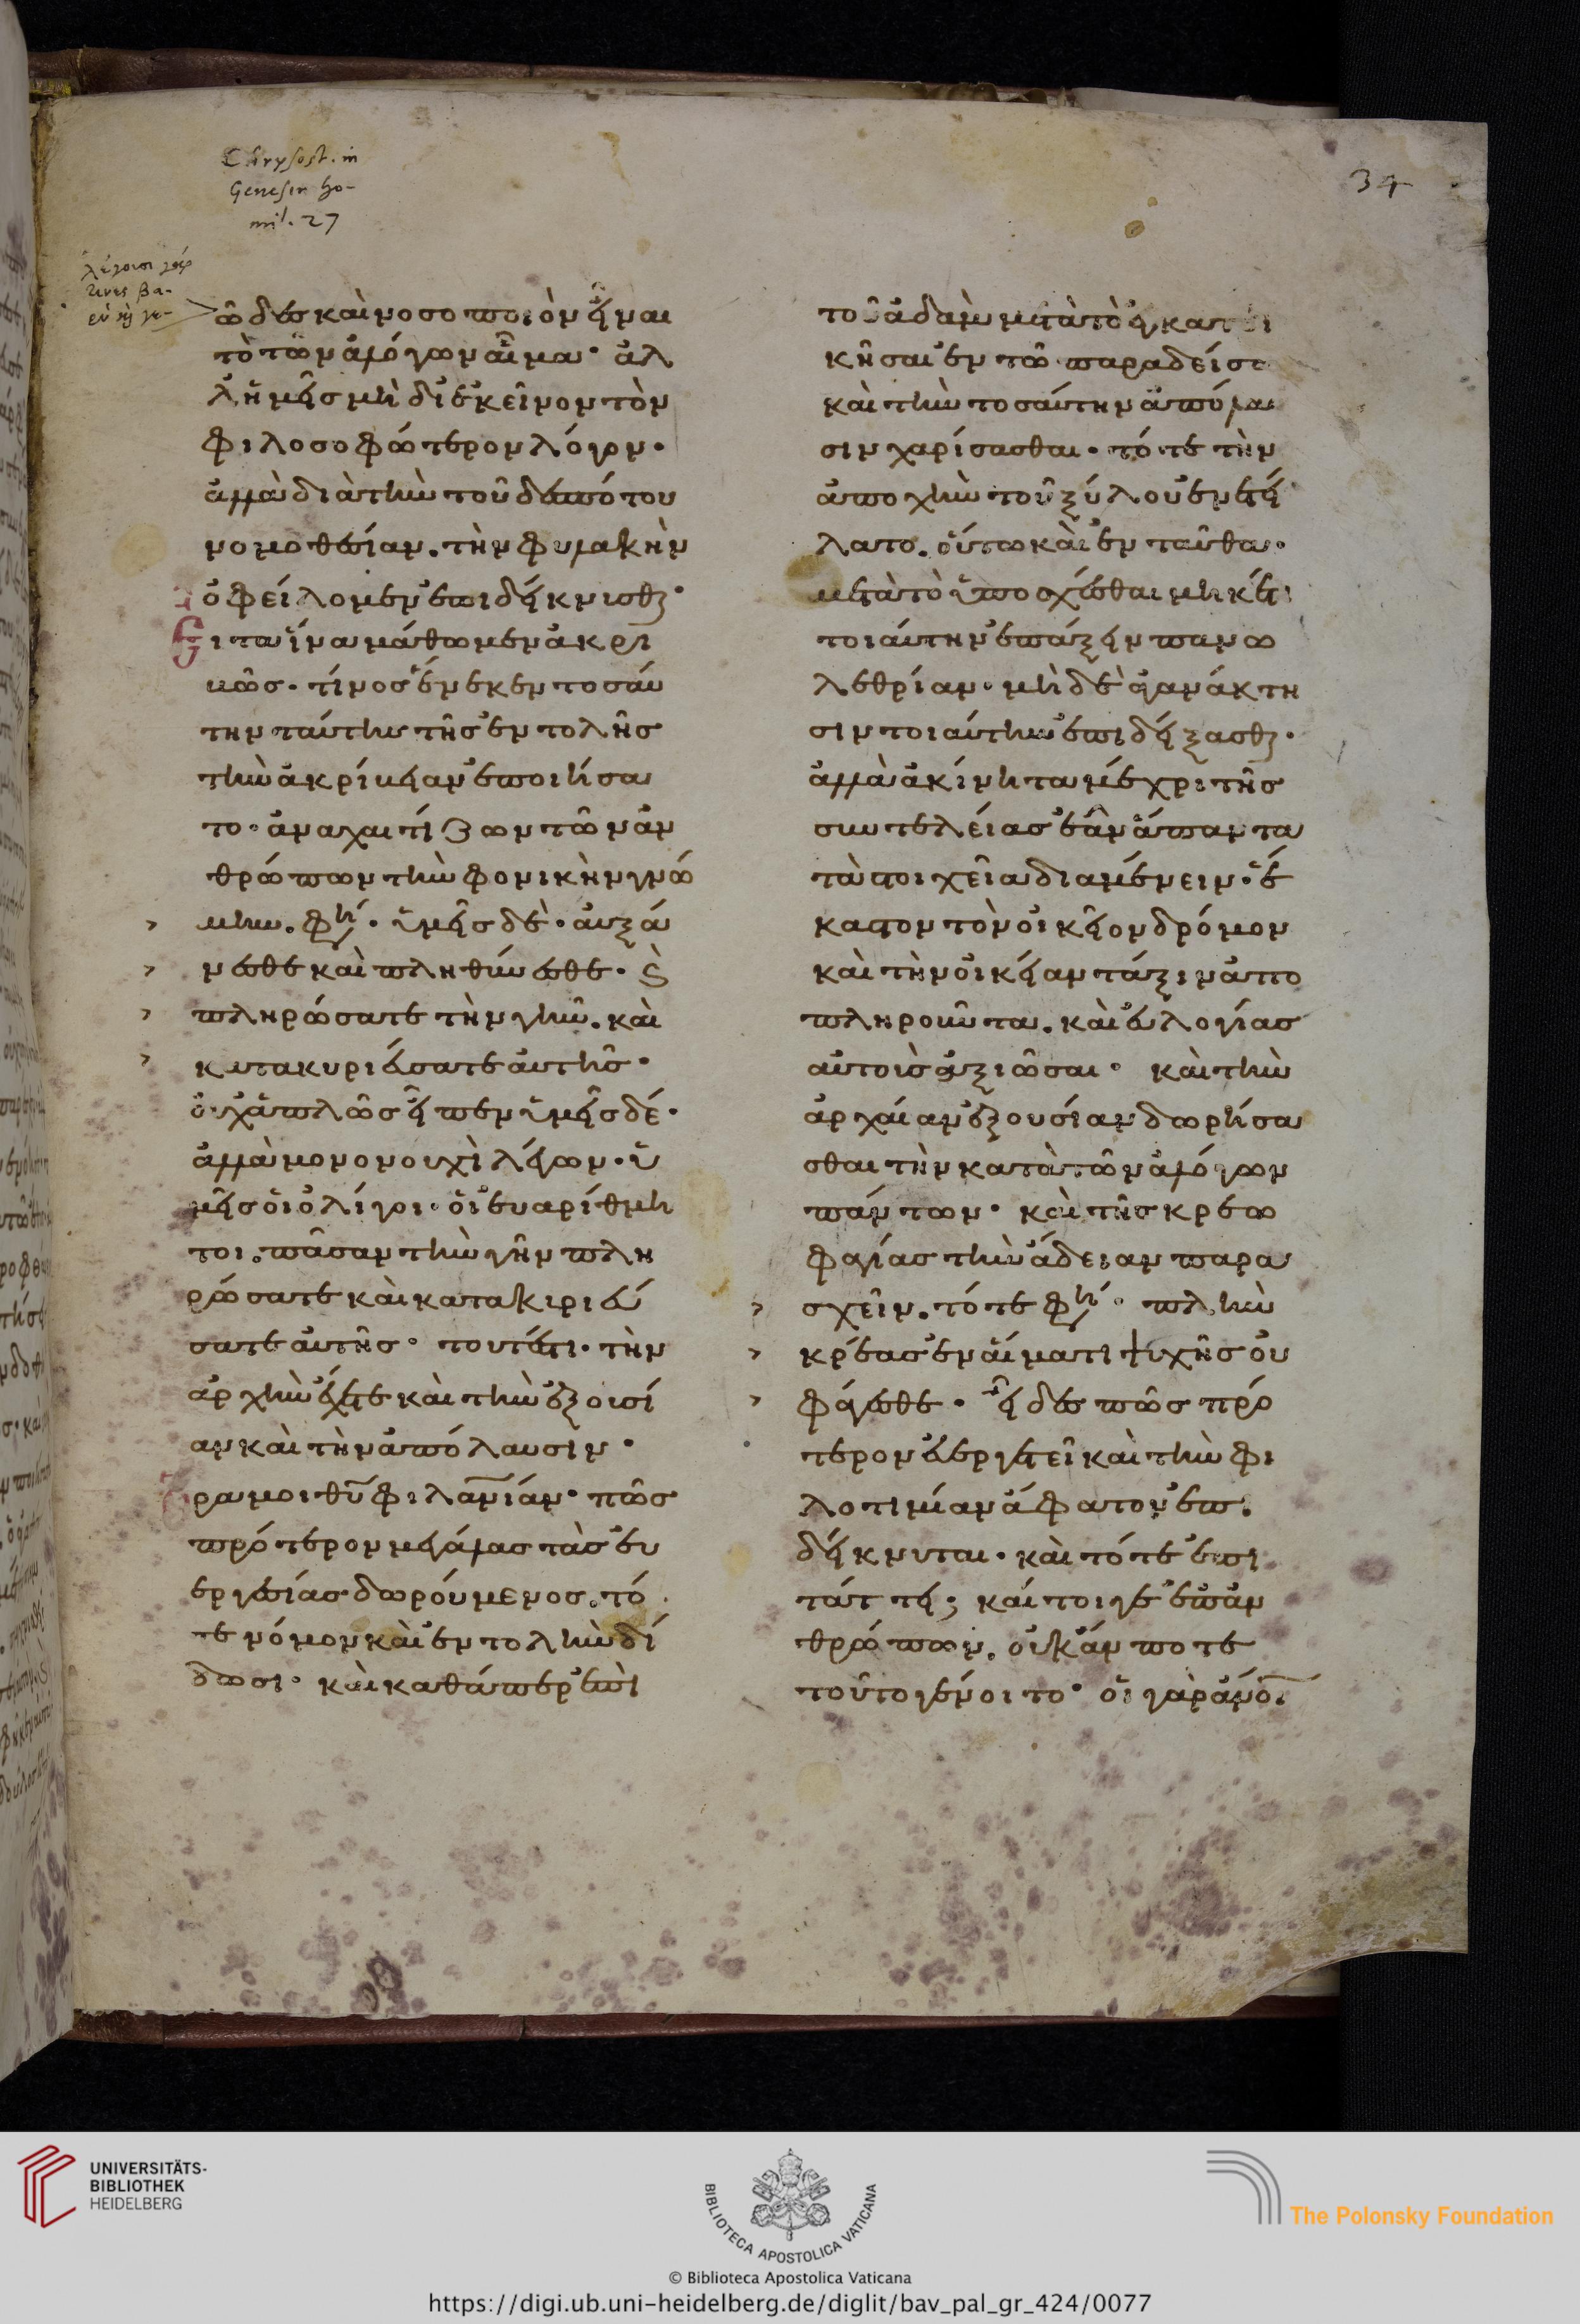 Chrysost. in
Genesin ho-
mil. 27
34
λέγουσι γάρ
τινες βα-
ρὺ καὶ γε-
ῶδες καὶ νοσοποιὸν εἶναι
τὸ τῶν ἀλόγων αἷμα· ἀλ
λ' ἡμεῖς μὴ δι' ἐκεῖνον τὸν
φιλοσοφώτερον λόγον·
ἀλλὰ διὰ τὴν τοῦ δεσπότου
νομοθεσίαν. τὴν φυλακὴν
ὀφείλομεν ἐπιδείκνυσθαι·
Εἶτα ἵνα μάθωμεν ἀκρι
βῶς· τίνος ἕνεκεν τοσαύ
την ταύτην τῆς ἐντολῆς
τὴν ἀκρίβειαν ἐποιήσα
το· ἀναχαιτίζων τῶν ἀν
θρώπων τὴν φονικὴν γνώ
μην. φησί· ὑμεῖς δὲ· αὐξά
νεσθε καὶ πληθύνεσθε· καὶ
πληρώσατε τὴν γῆν. καὶ
κατακυριεύσατε αὐτῆς·
οὐχ ἁπλῶς εἶπεν ὑμεῖς δέ·
ἀλλὰ μονονουχὶ λέγων· ὑ
μεῖς οἱ ὀλίγοι· οἱ εὐαρίθμη
τοι. πᾶσαν τὴν γῆν πλη
ρώσατε καὶ κατακυριεύ
σατε αὐτῆς· τουτέστι· τὴν
ἀρχὴν ἔχετε καὶ τὴν ἐξουσί
αν καὶ τὴν ἀπόλαυσιν·
Ὅρα μοι θυ φιλανιαν· πῶς
πρότερον μεγάλας τὰς εὐ
εργεσίας δωρούμενος. τό
τε νόμον καὶ ἐντολὴν δί
δωσι· καὶ καθάπερ ἐπὶ
τοῦ ἀδὰμ μετὰ τὸ ἐγκατοι
κῆσαι ἐν τῶ παραδείσω
καὶ τὴν τοσαύτην ἀπόλαυ
σιν χαρίσασθαι· τότε τὴν
ἀποχὴν τοῦ ξύλου ἐνετεί
λατο. οὕτω καὶ ἐνταῦθα·
μετὰ τὸ ὑποσχέσθαι μηκέτι
τοιαύτην ἐπάξειν πανω
λεθρίαν· μὴ δὲ ἀγανάκτη
σιν τοιαύτην ἐπιδείξασθαι·
ἀλλὰ ἀκίνητα μέχρι τῆς
συντελείας ἐᾶν ἅπαντα
τὰ στοιχεῖα διαμένειν· ἕ
καστον τὸν οἰκεῖον δρόμον
καὶ τὴν οἰκείαν τάξιν ἀπο
πληροῦντα. καὶ εὐλογίας
αὐτοὺς ἀξιῶσαι· καὶ τὴν
ἀρχαίαν ἐξουσίαν δωρήσα
σθαι τὴν κατὰ τῶν ἀλόγων
πάντων· καὶ τῆς κρεω
φαγίας τὴν ἄδειαν παρα
σχεῖν. τότε φησί· πλὴν
κρέας ἐν αἵματι ψυχῆς οὐ
φάγεσθε· εἶδες πῶς πρό
τερον εὐεργετεῖ καὶ τὴν φι
λοτιμίαν ἄφατον ἐπι
δείκνυται· καὶ τότε ἐπι
τάττει; καίτοιγε ἐπ' ἀν
θρώπων. οὐκ ἄν ποτε
τοῦτο γένοιτο· οἱ γὰρ ἄνοι
UNIVERSITÄTS-
BIBLIOTHEK
HEIDELBERG
BIBLIOTECA APOSTOLICA VATICANA
The Polonsky Foundation
© Biblioteca Apostolica Vaticana
https://digi.ub.uni-heidelberg.de/diglit/bav_pal_gr_424/0077